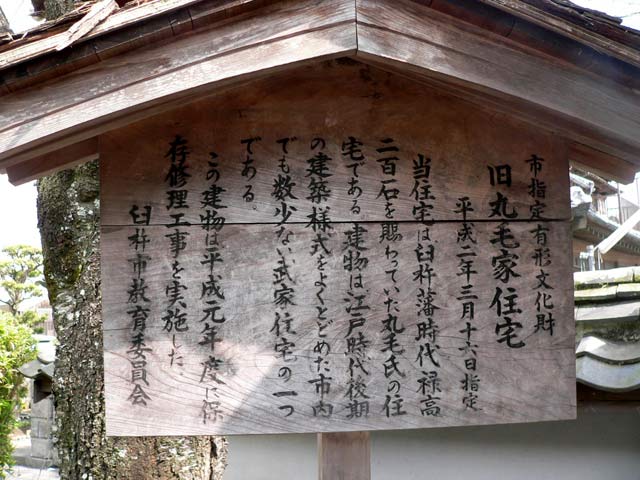 市指定有形文化財
旧丸毛家住宅
平成二年三月十六日指定
当住宅は、臼杵藩時代禄高
二百石を賜わっていた丸毛氏の住
宅である。建物は江戸時代後期
の建築様式をよくとどめた市内
でも数少ない武家住宅の一つ
である。
この建物は平成元年度に保
存修理工事を実施した。
臼杵市教育委員会